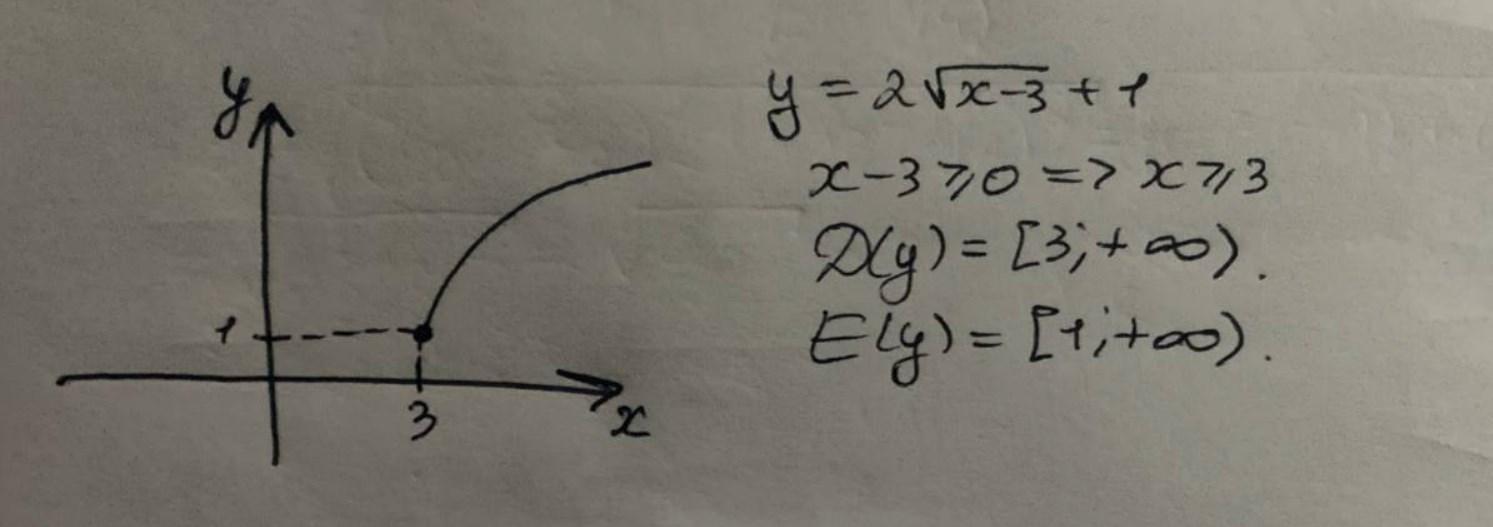 y
1
3
x
y = 2√(x-3) + 1
x-3⩾0 => x⩾3
D(y) = [3;+∞).
E(y) = [1;+∞).